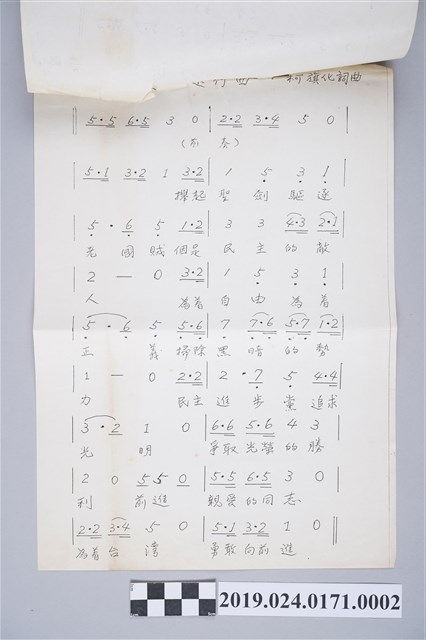 進行曲 — 柯旗化詞曲
5·5 6·5 3 0 | 2·2 3·4 5 0
(前奏)
5·1 3·2 1 3·2 | 1 5 3 1
舉起聖劍驅逐
5· 6 5 1·2 | 3 3 4·3 2·1
老國賊個是民主的敵
2 — 0 3·2 | 1 5 3 1
人 為着自由為着
5 · 6 5 5·6 | 7 7·6 5·7 1·2
正義掃除黑暗的勢
1 — 0 2·2 | 2· 7 5 4·4
力 民主進步黨追求
3 · 2 1 0 | 6·6 5·6 4 3
光明 爭取光榮的勝
2 0 5 5 0 | 5·5 6·5 3 0
利 前進 親愛的同志
2·2 3·4 5 0 | 5·1 3·2 1 0
為着台湾 勇敢向前進
2019.024.0171.0002